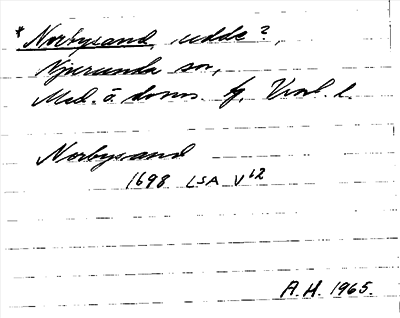 *Norbysand, udde?,
Njurunda sn,
Med. ö. doms. fg, Vnrl. l.
Norbysand
1698 LSA V 62
A.H. 1965.